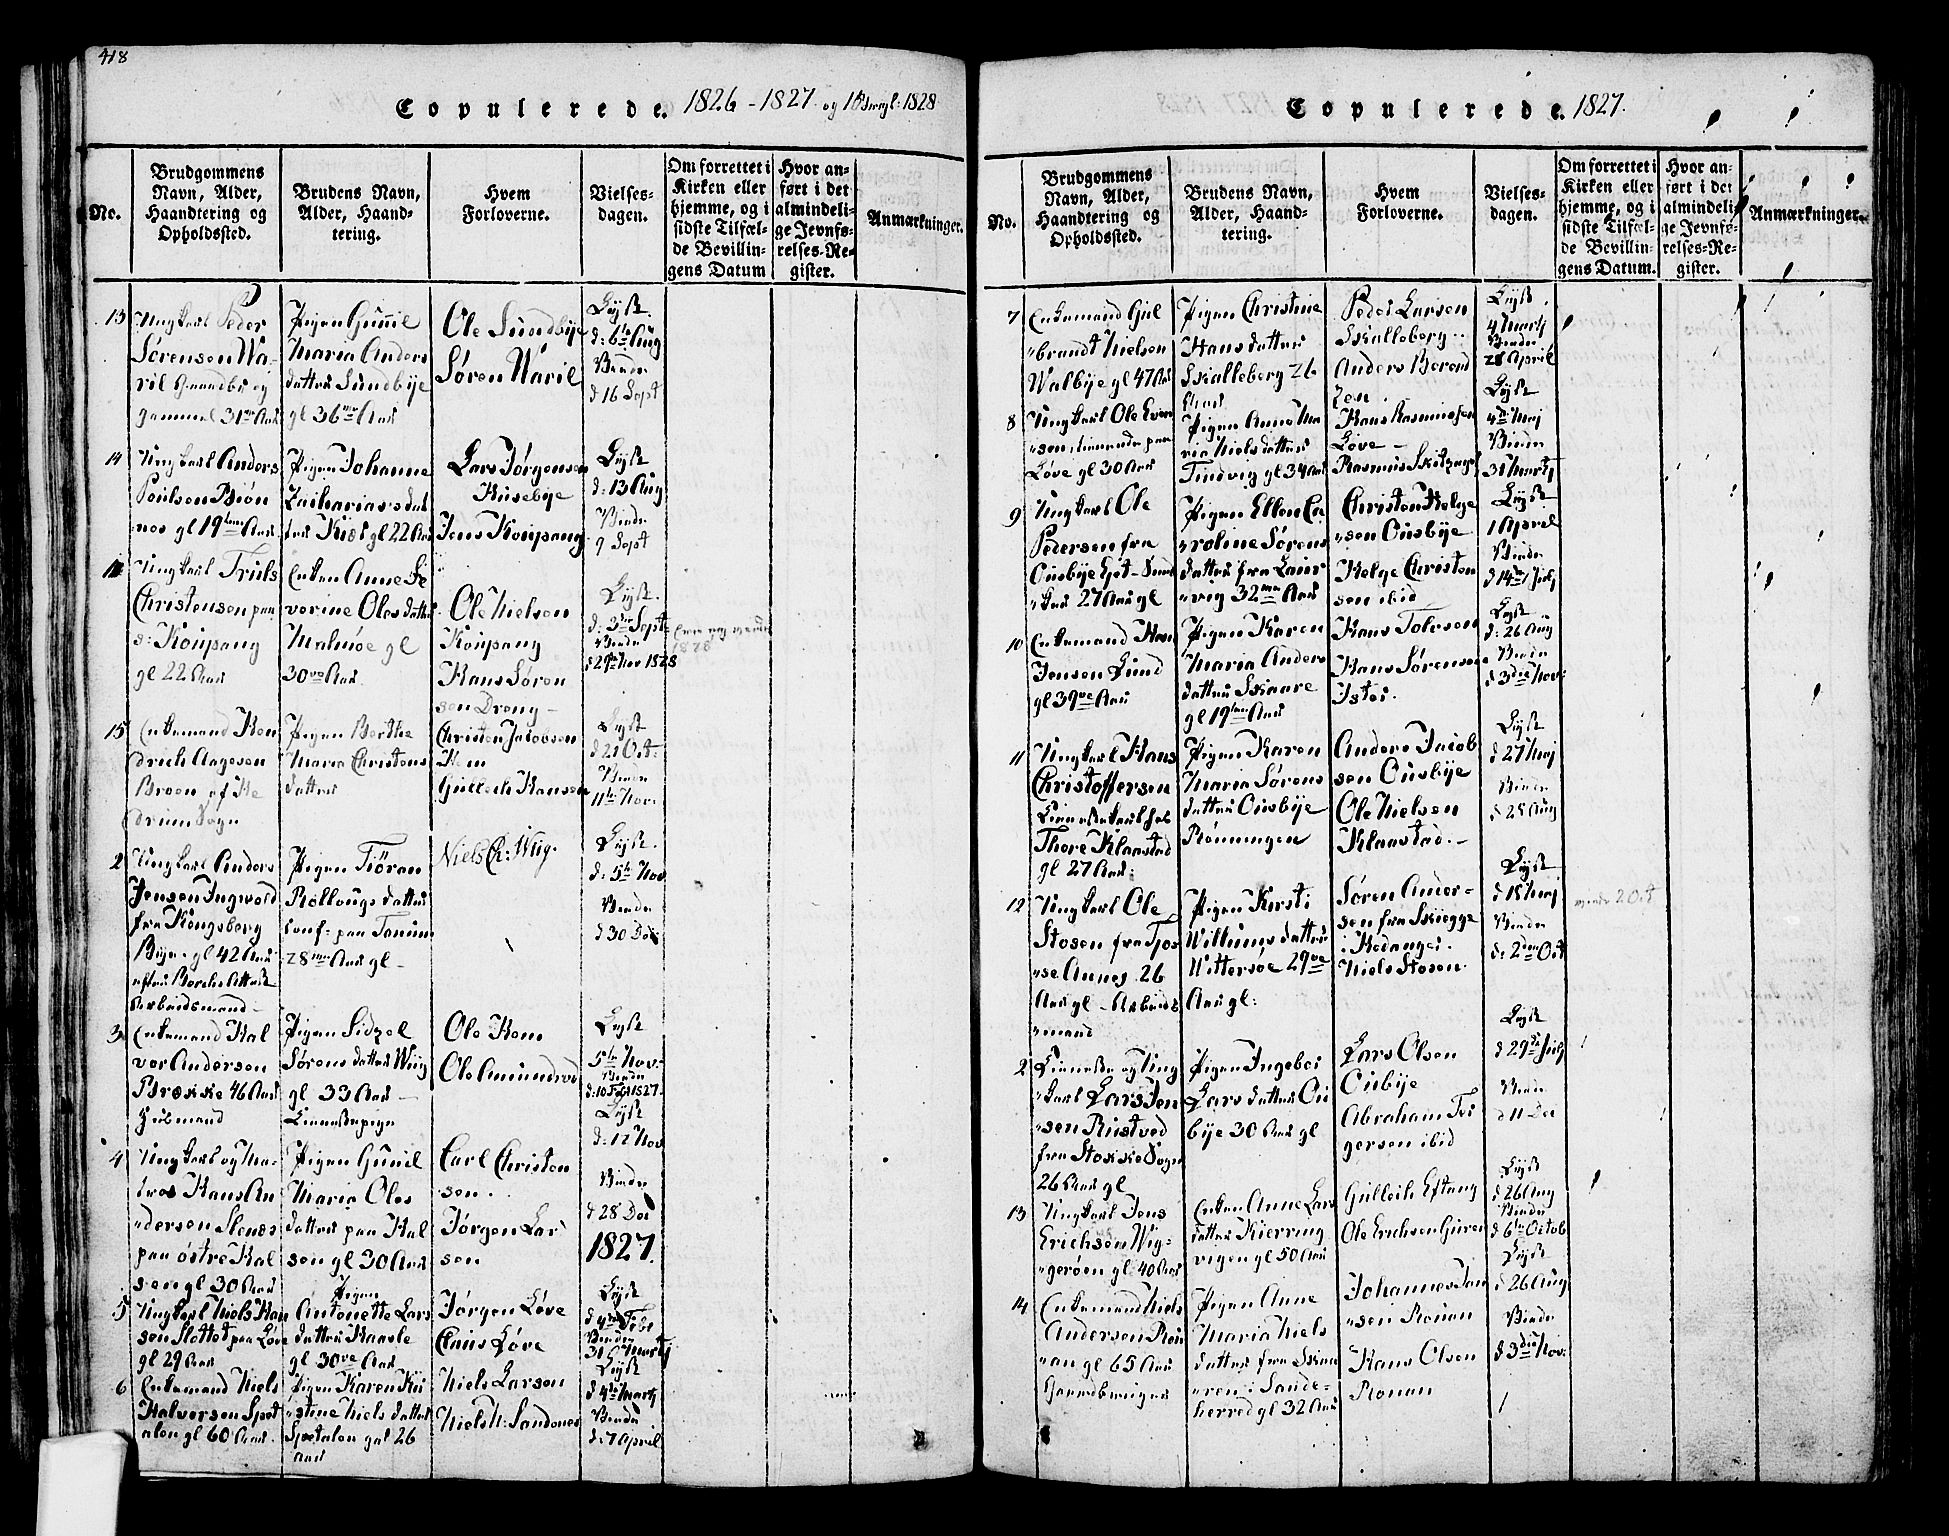 418
Copulerede. 1826 - 1827. og 1828
No.
Brudgommens
Navn, Alder,
Haandtering og
Opholdssted.
Brudens Navn,
Alder, Haand-
tering.
Hvem
Forloverne.
Vielses-
dagen.
Om forrettet i
Kirken eller
hjemme, og i
sidste Tilfæl-
de Bevillin-
gens Datum
Hvor an-
ført i det
almindeli-
ge Jevnfø-
relses-Re-
gister.
Anmærkninger.
13
Ungkarl Peder
Sørensen Wa-
ril Gaardbr og
gammel 31 Aar
Pigen Gunil
Maria Anders
datter Sundbye
gl 36 Aar
Ole Sundbye
Søren Waril
Lyst
d: 6te Aug
Viede
d 16 Sept
14
Ungkarl Anders
Poulsen Biøn
nes gl 19 Aar
Pigen Johanne
Zacharias dat
ter Kiøl gl 22 Aar
Lars Jørgensen
Husebye
Jens Kaupang
Lyst
d: 13 Aug
Viede
9 Sept
Ungkarl Truls
Christensen paa
Kaupang
gl 22 Aar
Enken Anne Se
verine Olesdatter
Malmøe gl
30 Aar
Ole Nielsen
Kaupang
Hans Søren
sen Dreng
Lyst
d: 3 Sept
Viede
d 29 Nov 1828
1828
15
Enkemand Hen
drich Aagesen
Broen af He
drum Sogn
Pigen Berthe
Maria Christens
datter
Christen Jacobsen
Hem
Gullech Hansen
Lyst
d 21 Oct
Viede
11te Nov
2
Ungkarl Anders
Jensen Ingvold
fra Kongsberg
Bye gl 42 Aar
efter Borche Attest
Arbeidsmand
Pigen Tiøran
Rollougs datter
paa Tanum
28 Aar gl
Niels Ch: Wug.
Lyst
d: 5te Nov
Viede
d 30 Dec
3
Enkemand Hal
vor Andersen
Brække 46 Aar
Huusmand
Pigen Sidzel
Sørens datter Wug
gl 33 Aar
Tienestepige
Ole Hem
Ole Amundrød
Lyst
5te Nov
Viede
d: 10 Feb 1827.
4
Ungkarl og Ma-
tros Hans An
dersen Stenæs
paa østre Hal
sen gl 30 Aar
Pigen Gunil
Maria Oles
datter paa Hal
sen gl 30 Aar
Carl Christen
sen.
Jørgen Lar
sen
Lyst
d: 12 Nov
Viede
d 28 Dec
1827.
5
Ungkarl Niels Han
sen Slottet paa Løve
gl 29 Aar
Pigen
Antonette Lars
datter Haavle
gl 30 Aar
Jørgen Løve
Claus Løve
Lyst
d 4 Febr
Viede
31 Martj
6
Enkemand Niels
Halversen Spet
alen gl 60 Aar
Pigen Karen Kir
stine Niels datter
Spetalen gl 26
Aar
Niels Larsen
Niels N: Sandenes
Lyst
d 4 Martj
Viede
d: 7 April
Copulerede. 1827.
No.
Brudgommens
Navn, Alder,
Haandtering og
Opholdssted.
Brudens Navn,
Alder, Haand-
tering.
Hvem
Forloverne.
Vielses-
dagen.
Om forrettet i
Kirken eller
hjemme, og i
sidste Tilfæl-
de Bevillin-
gens Datum.
Hvor an-
ført i det
almindeli-
ge Jevnfø-
relses-Re-
gister.
Anmærkninger.
7
Enkemand Gul
brandt Nielsen
Walbye gl 47 Aar
Pigen Christine
Hans datter
Skalleberg 26
Aar
Peder Larsen
Skalleberg
Anders Berend
zen
Lyst
4 Martj
Viede
28 April
8
Ungkarl Ole Even
sen paa
Løve gl 30 Aar
Pigen Anne Ma
ria Niels datter
Tindvig gl 34 Aar
Hans Rasmussen
Løve
Rasmus
Lyst
4de Maj
Viede
31 Martj
9
Ungkarl Ole
Pedersen fra
Ousbye
27 Aar gl
Pigen Ellen Ca
roline Sørens
datter fra Laur
vig 32 Aar
Christen Helge
sen Ousbye
Helge Christen
sen ibid
Lyst
1 April
Viede
d 14 Julj
10
Enkemand Hans
Jensen Lund
gl 39 Aar
Pigen Karen
Maria Anders
datter Skaare
gl 19 Aar
Hans Tolesen
Hans Sørensen
Istøi.
Lyst
d: 26 Aug
Viede
d 3die Nov
11
Ungkarl Hans
Christoffersen
Tienestekarl hos
Thore Klaastad
gl 27 Aar
Pigen Karen
Maria Sørens
datter Ousbye
Rønningen
Anders Jacob
sen Ousbye
Ole Nielsen
Klaastad
Lyst
d 27 Maj
Viede
d 25 Aug
12
Ungkarl Ole
Stosen fra Tjos
Annex 26
Aar gl - Arbeids
mand
Pigen Kirsti
Willums datter
Wittersøe 29
Aar gl:
Søren Ander-
sen fra Skiegge
i Hedanger
Niels Stosen
Lyst
d 18 Maj
Viede
d: 2den Oct
viede 2 Oct
2
Tieneste og Ung
karl Lars Jen
sen Rustved
fra Stokke Sogn
26 Aar gl
Pigen Ingebor
Lars datter Ou
bye 30 Aar gl
Lars Olsen
Oubye
Abraham Tor
gersen ibid
Lyst
d 29 Julj
Viede
d 11 Dec
13
Ungkarl Jens
Erichsen Wig-
gerøen gl 40 Aar
Enken Anne Lars
datter Kierring
vigen gl 50 Aar
Gulleik Eftang
Ole Erichsen Guren
Lyst
d 26 Aug
Viede
d 6te Octob
14
Enkemand Niels
Andersen Rou
an gl 65 Aar
Gaardbruger
Pigen Anne
Maria Niels
datter fra Skau
ren i Sande-
herred gl 32 Aar
Johannes Jan
sen Rouan
Hans Olsen
Ronan
Lyst
d 26 Aug
Viede
d 3die Nov: